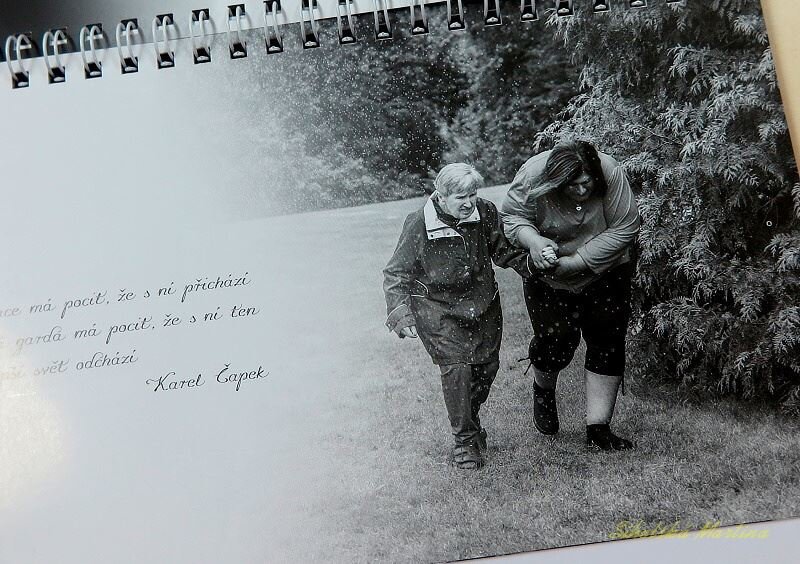 má pocit, že s ní přichází
garda má pocit, že s ní ten
svět odchází
Karel Čapek
Martina